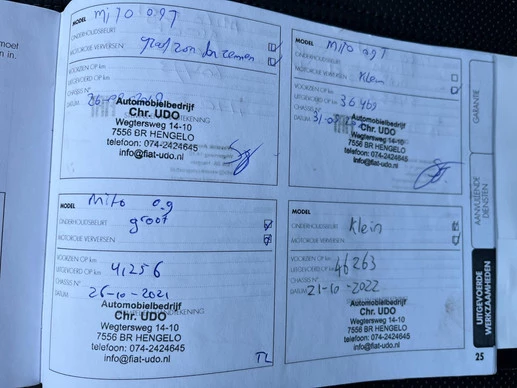 moet
en in.
MODEL Mito 0.9T
ONDERHOUDSBEURT
MOTOROLIE VERVERSEN
VOORZIEN OP km
UITGEVOERD OP km
CHASSIS N°
DATUM
Automobielbedrijf
Chr. UDO
Wegtersweg 14-10
7556 BR HENGELO
telefoon: 074-2424645
info@fiat-udo.nl
MODEL Mito 0.9T
ONDERHOUDSBEURT
MOTOROLIE VERVERSEN Klein
VOORZIEN OP km
UITGEVOERD OP km
CHASSIS N°
DATUM
Automobielbedrijf
Chr. UDO
Wegtersweg 14-10
7556 BR HENGELO
telefoon: 074-2424645
info@fiat-udo.nl
MODEL Mito 0.9
ONDERHOUDSBEURT groot
MOTOROLIE VERVERSEN
VOORZIEN OP km
UITGEVOERD OP km 41256
CHASSIS N°
DATUM 26-10-2021
Automobielbedrijf
Chr. UDO
Wegtersweg 14-10
7556 BR HENGELO
telefoon: 074-2424645
info@fiat-udo.nl
TL
MODEL
ONDERHOUDSBEURT Klein
MOTOROLIE VERVERSEN
VOORZIEN OP km
UITGEVOERD OP km 46263
CHASSIS N°
DATUM 21-10-2022
Automobielbedrijf
Chr. UDO
Wegtersweg 14-10
7556 BR HENGELO
telefoon: 074-2424645
info@fiat-udo.nl
GARANTIE
AANVULLENDE
DIENSTEN
UITGEVOERDE
WERKZAAMHEDEN
25